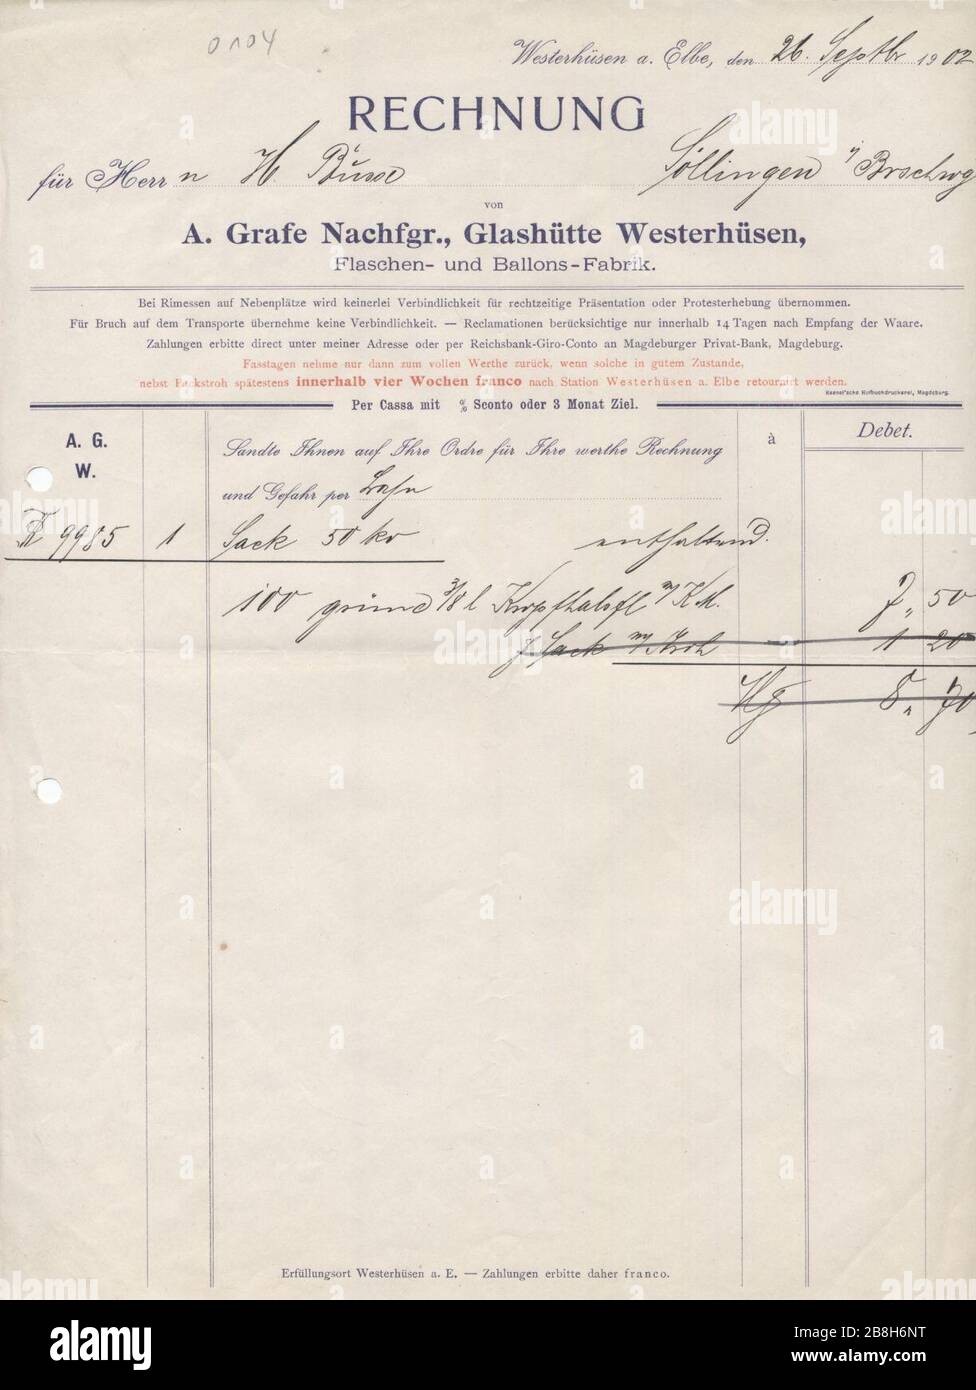 0104
Westerhüsen a. Elbe, den 26. Septbr 1902
RECHNUNG
für Herrn H. Busse Söllingen i/ Brschwg
von
A. Grafe Nachfgr., Glashütte Westerhüsen,
Flaschen- und Ballons-Fabrik.
Bei Rimessen auf Nebenplätze wird keinerlei Verbindlichkeit für rechtzeitige Präsentation oder Protesterhebung übernommen.
Für Bruch auf dem Transporte übernehme keine Verbindlichkeit. — Reclamationen berücksichtige nur innerhalb 14 Tagen nach Empfang der Waare.
Zahlungen erbitte direct unter meiner Adresse oder per Reichsbank-Giro-Conto an Magdeburger Privat-Bank, Magdeburg.
Fasstagen nehme nur dann zum vollen Werthe zurück, wenn solche in gutem Zustande,
nebst Packstroh spätestens innerhalb vier Wochen franco nach Station Westerhüsen a. Elbe retournirt werden.
Baensch'sche Hofbuchdruckerei, Magdeburg.
Per Cassa mit % Sconto oder 3 Monat Ziel.
A. G. W.
Sandte Ihnen auf Ihre Ordre für Ihre werthe Rechnung
à
Debet.
und Gefahr per Bahn
9985 1 Sack 50 ko enthaltend.
100 grüne 3/8 l Kropfhalsfl m/ K.M. 7 „ 50
1 Sack m/ Stroh 1 20
Mg 8 „ 70
Erfüllungsort Westerhüsen a. E. — Zahlungen erbitte daher franco.
alamy
Image ID: 2B8H6NT
www.alamy.com